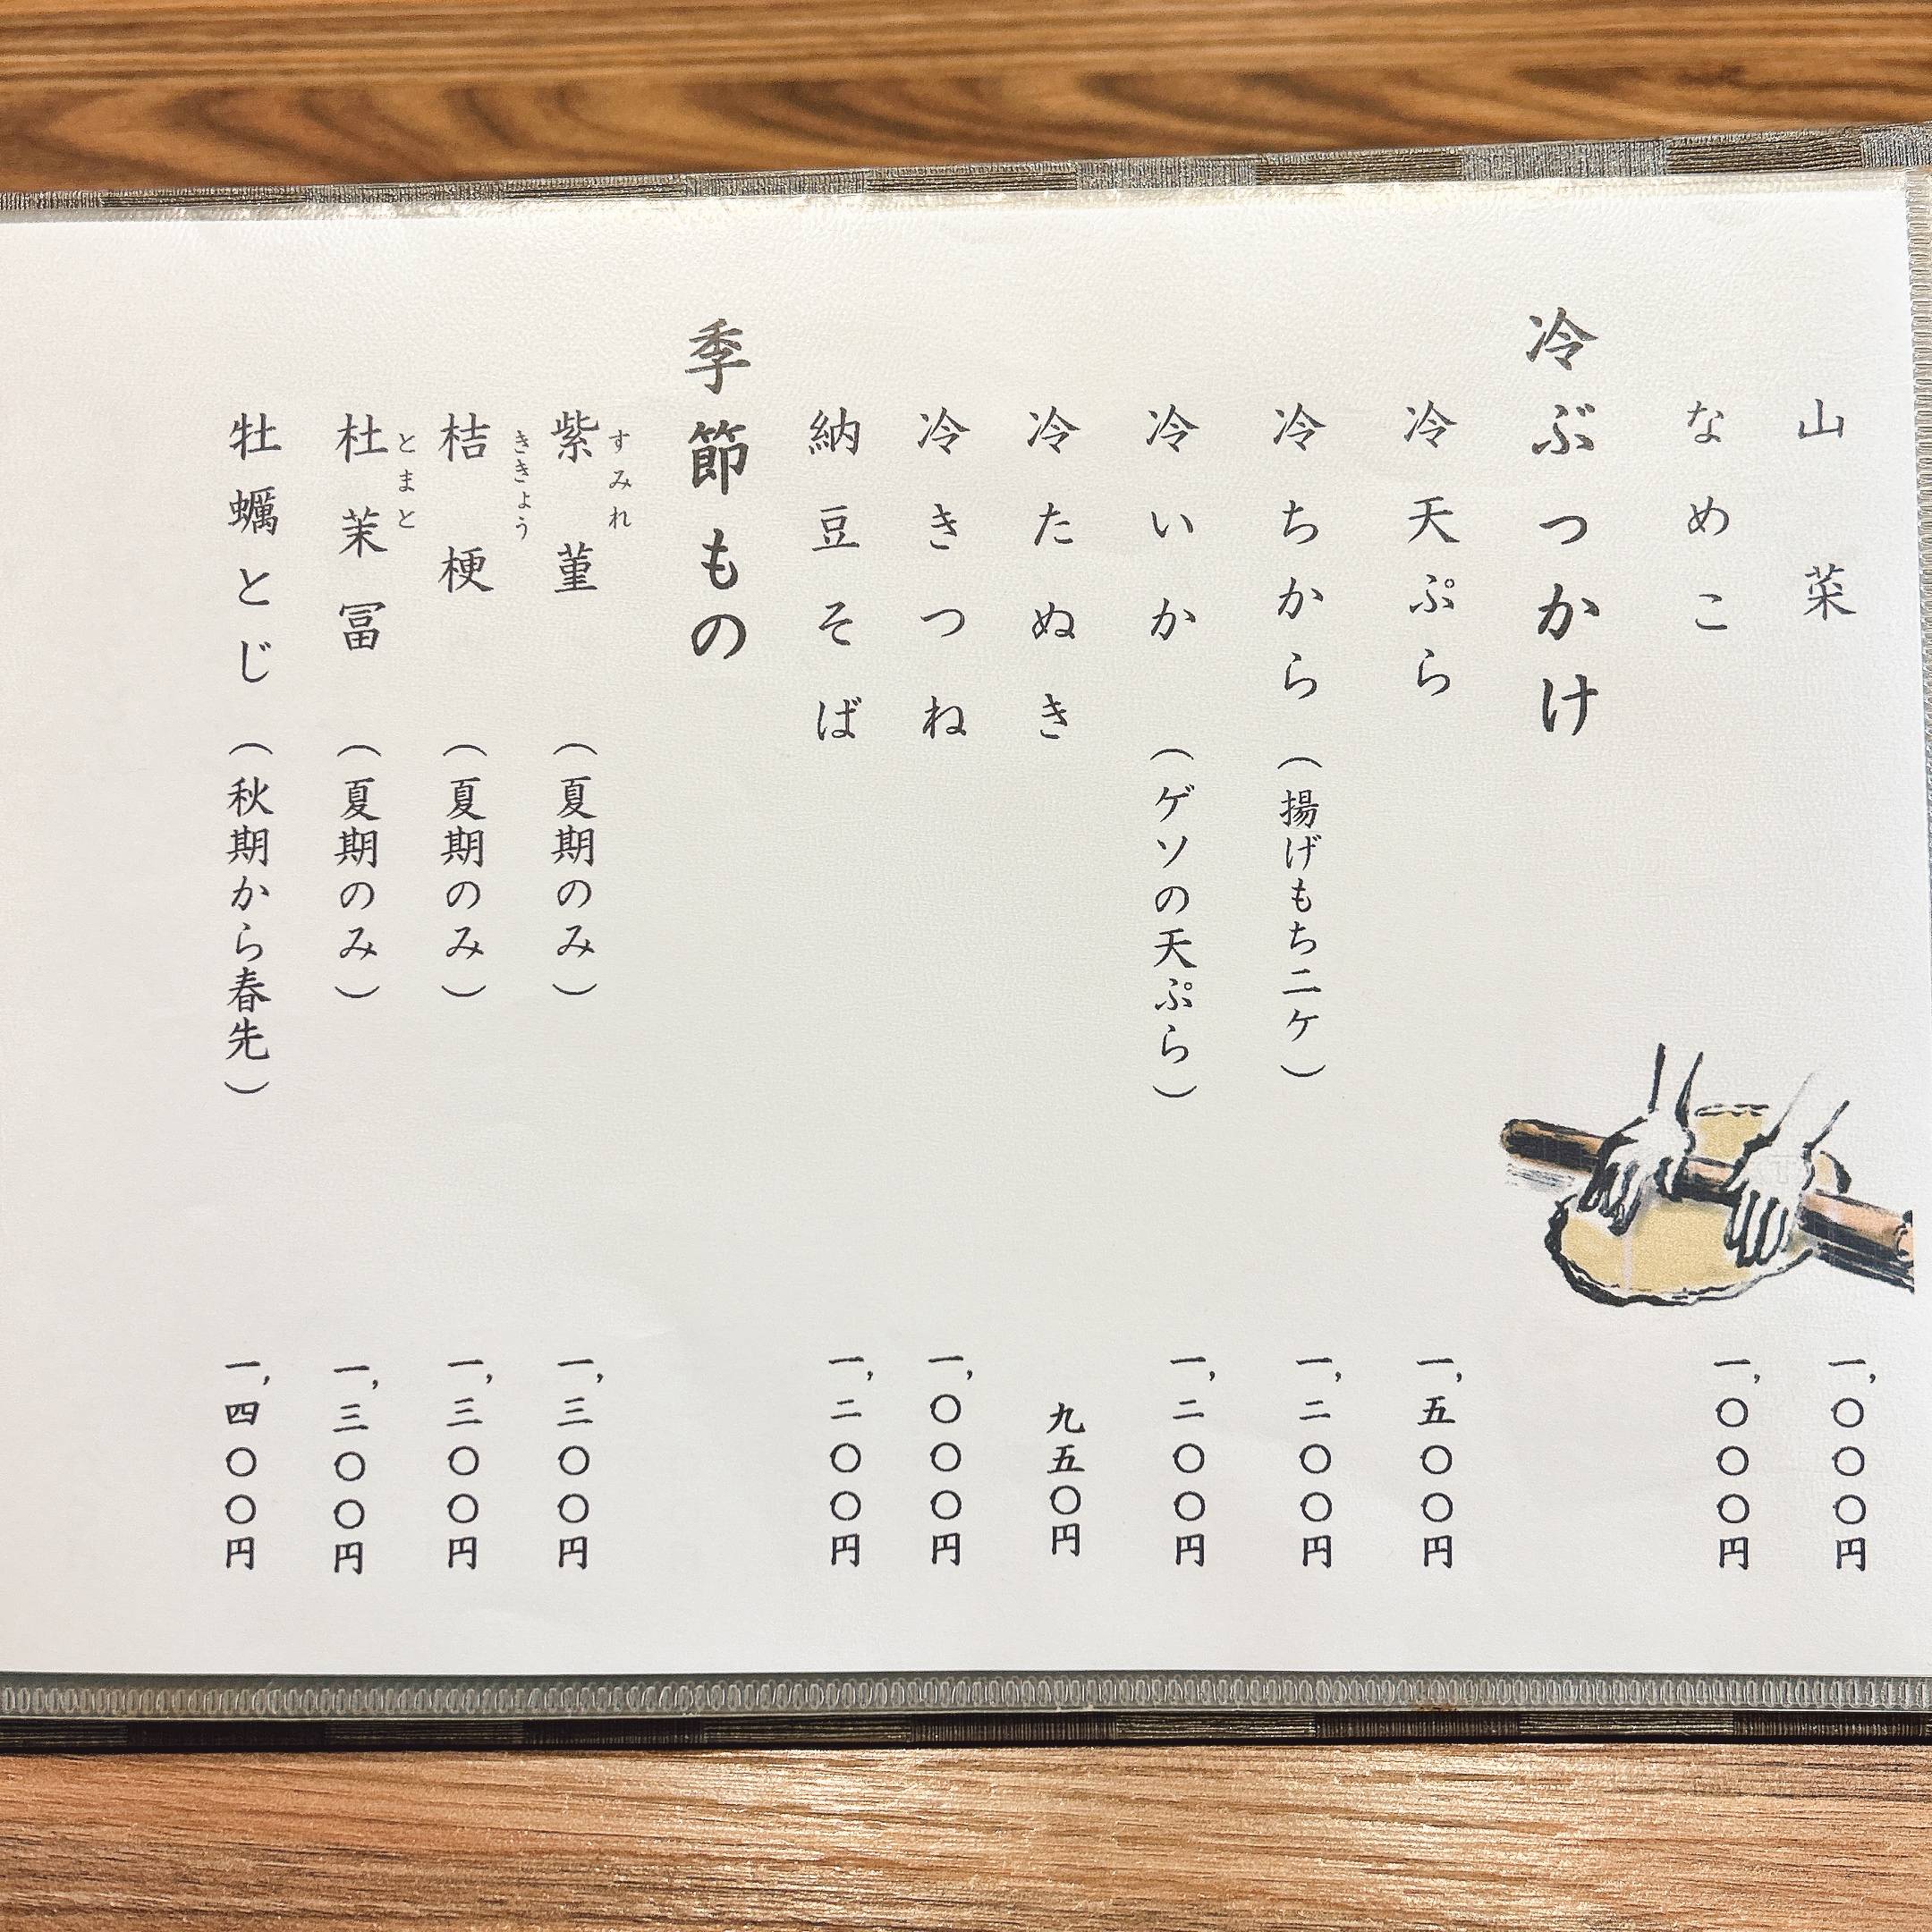 山菜 一,〇〇〇円
なめこ 一,〇〇〇円
冷ぶつかけ
冷天ぷら 一,五〇〇円
冷ちから（揚げもち二ケ） 一,二〇〇円
冷いか（ゲソの天ぷら） 一,二〇〇円
冷たぬき 九五〇円
冷きつね 一,〇〇〇円
納豆そば 一,二〇〇円
季節もの
すみれ
紫菫（夏期のみ） 一,三〇〇円
ききょう
桔梗（夏期のみ） 一,三〇〇円
とまと
杜茉冨（夏期のみ） 一,三〇〇円
牡蠣とじ（秋期から春先） 一,四〇〇円